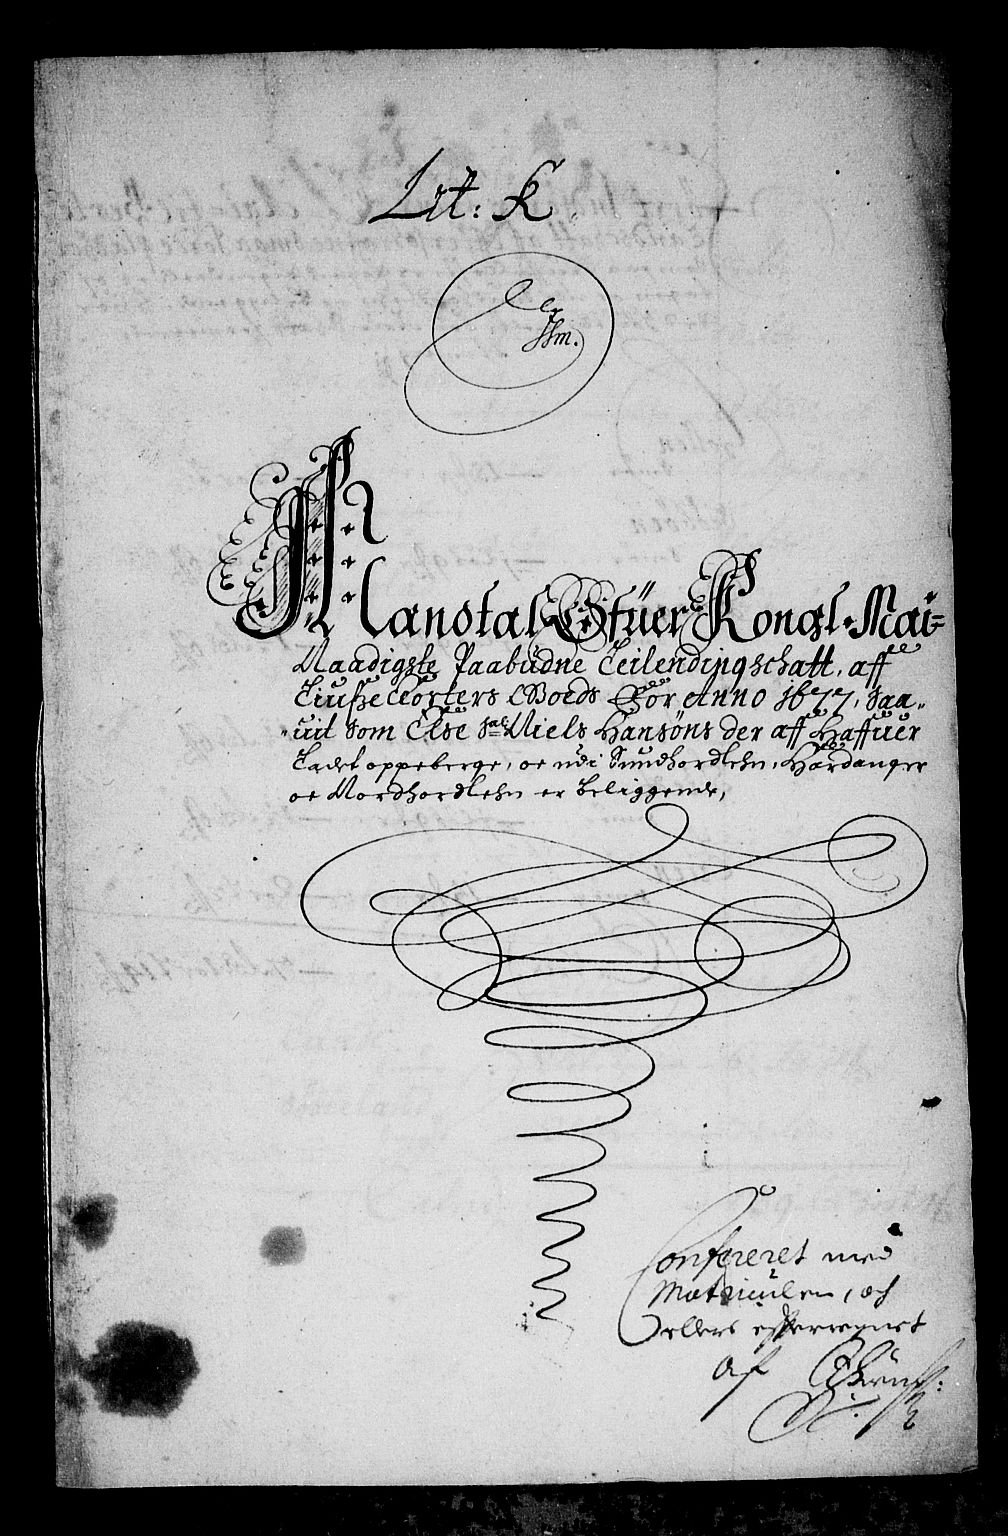 Lit: K
Mandtal Ofuer Kongl. Mai=
Naadigste Paabudne Leilendingschatt, aff
Liusse Closters Goeds For Anno 1677, Saa„
„uit som Else Sal: Niels Hansøns der aff Hafuer
Ladet oppeberge, oc udi Sundhordlehn, Hardanger
oc Nordhordlehn er beliggende,
Confereret med
Matriculen, och
ellers efterregnet
af